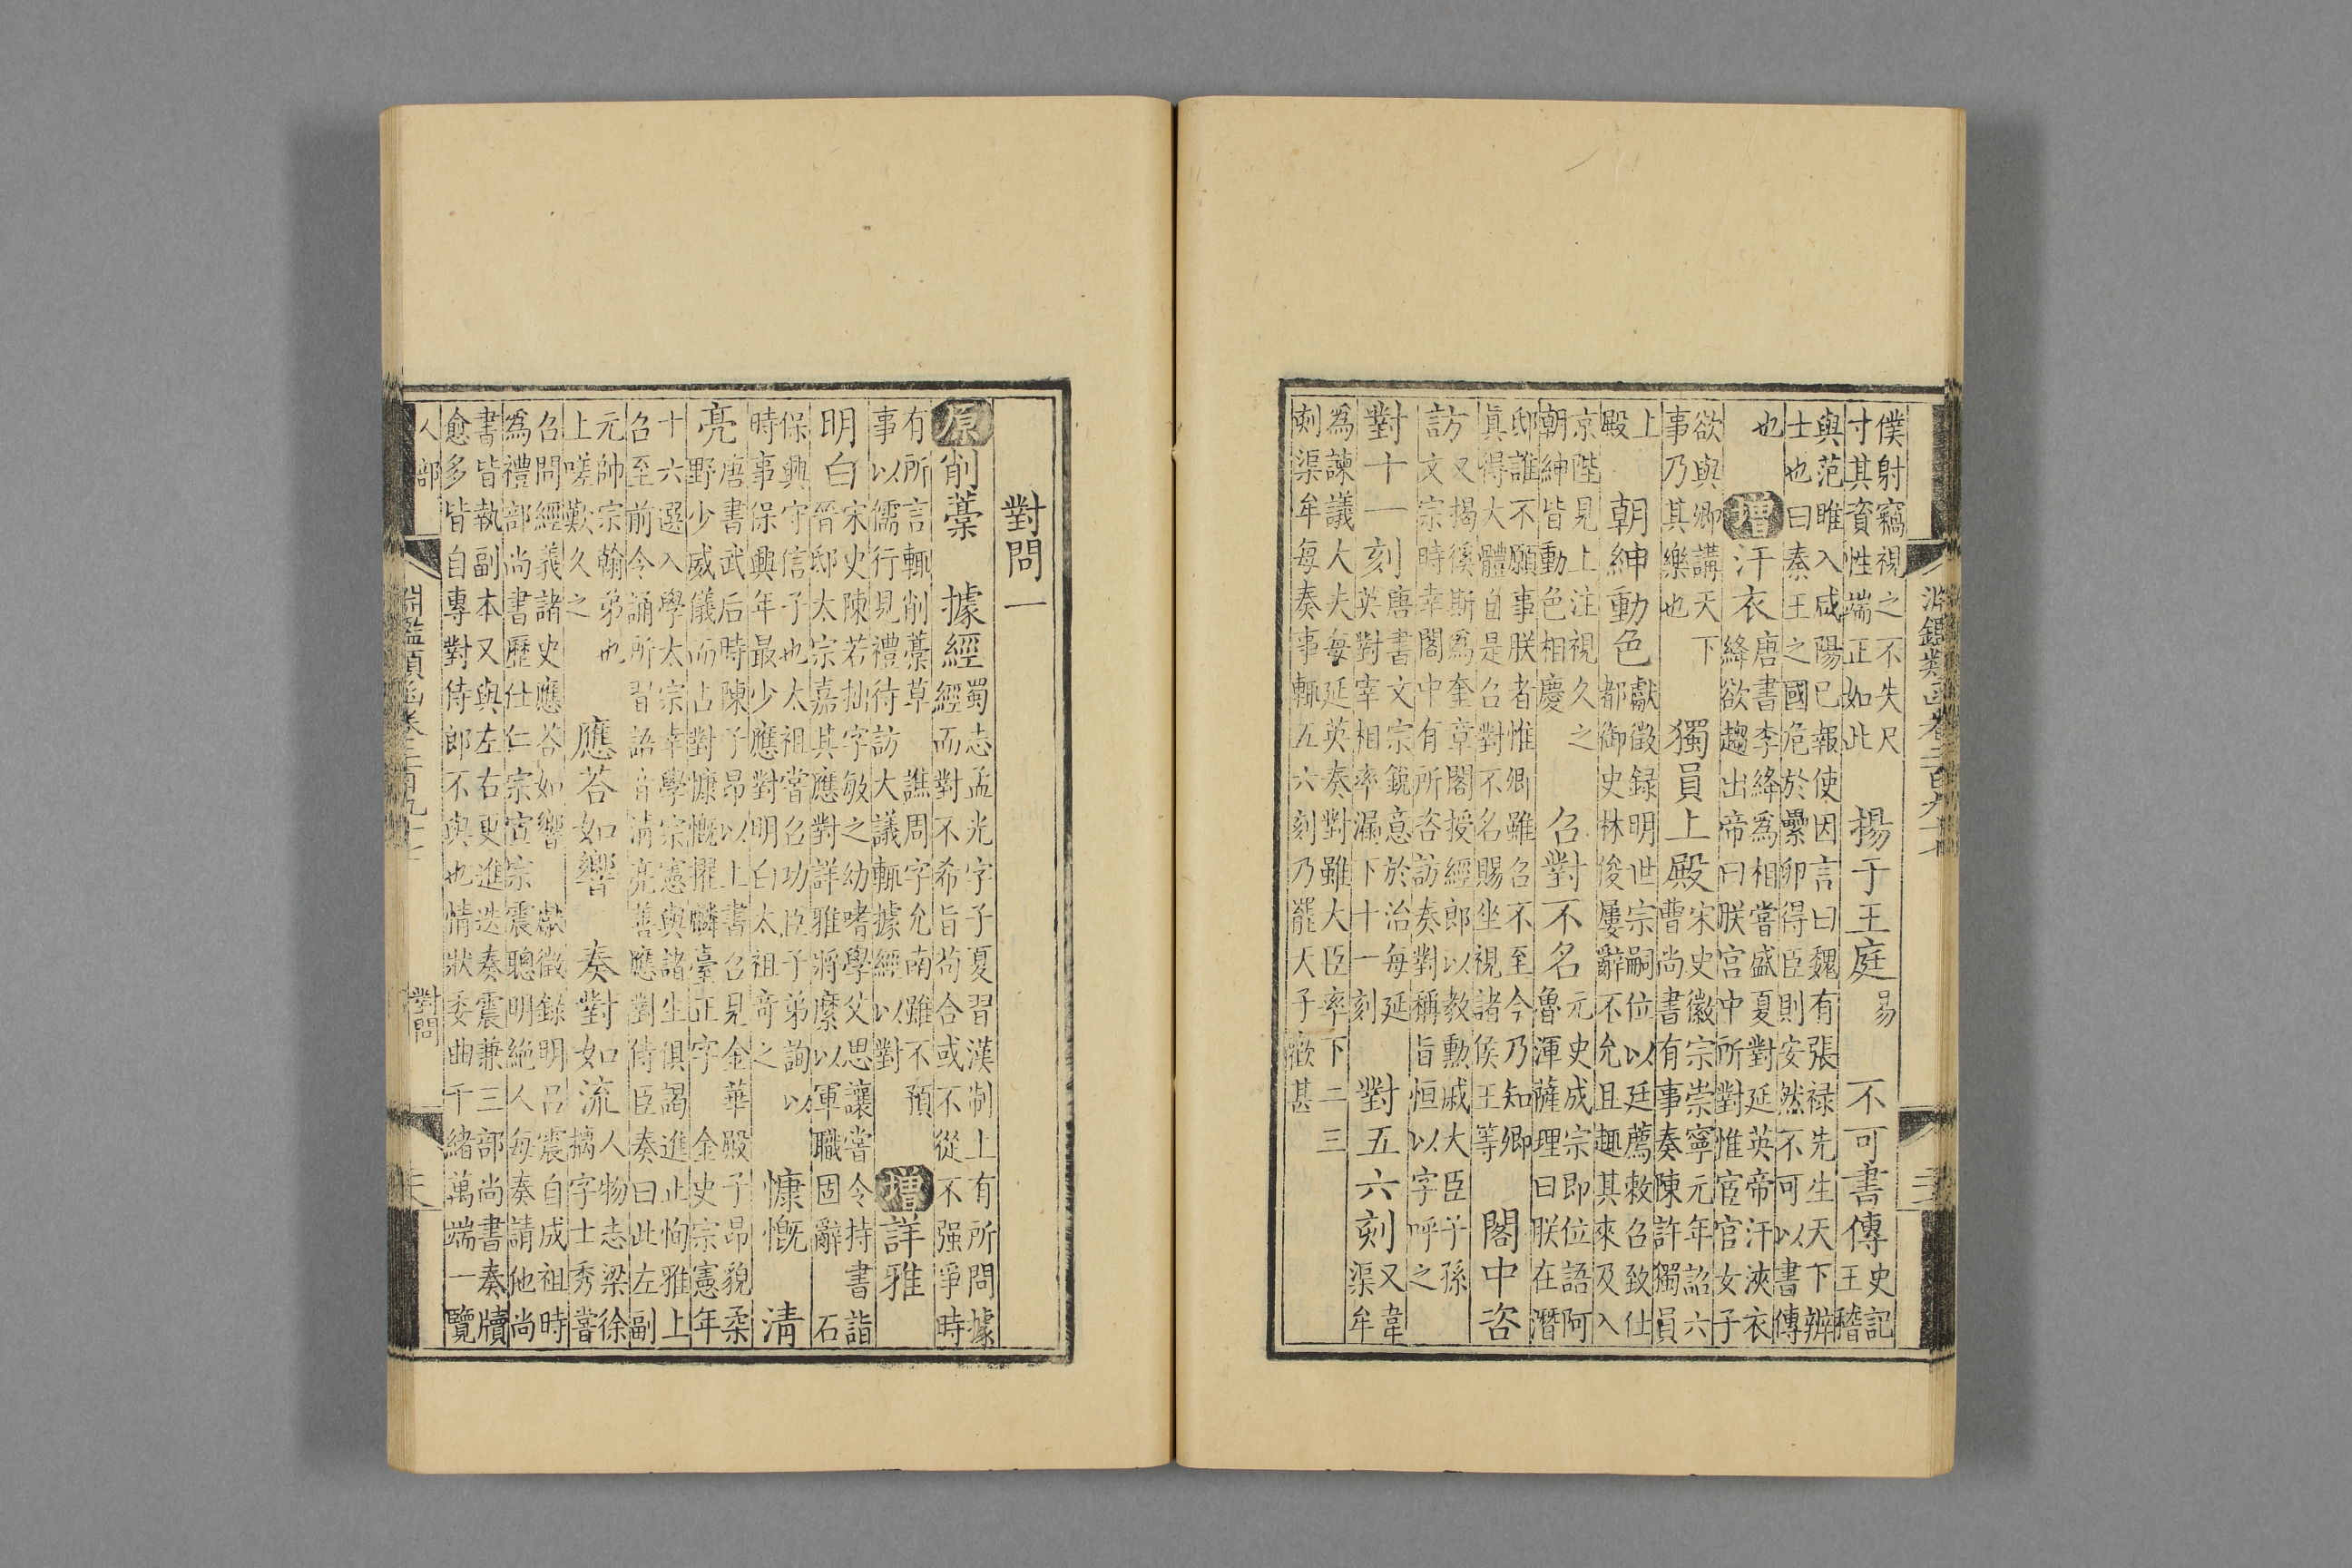 淵鑑類函卷二百九十七 三
僕射竊視之不失尺
寸其資性端正如此
揚于王庭 易 不可書傳
史記
王稽
與范雎入咸陽已報使因言曰魏有張祿先生天下辨
士也曰秦王之國危於纍卵得臣則安然不可以書傳
也 增汗衣
唐書李絳為相嘗盛夏對延英帝汗浹衣
絳欲趨出帝曰朕宮中所對惟宦官女子
欲與卿講天下
事乃其樂也
獨員上殿
宋史徽宗崇寧元年詔六
曹尚書有事奏陳許獨員
上
殿
朝紳動色
獻徵録明世宗嗣位以廷薦敕召致仕
都御史林俊屢辭不允且趣其來及入
京陛見上注視久之
朝紳皆動色相慶
召對不名
元史成宗即位語阿
魯渾薩理曰朕在潛
邸誰不願事朕者惟卿雖召不至今乃知卿
真得大體自是召對不名賜坐視諸侯王等
閣中咨
訪
又揭傒斯為奎章閣授經郎以教勲戚大臣子孫
文宗時幸閣中有所咨訪奏對稱旨恒以字呼之
對十一刻
唐書文宗銳意於治每延
英對宰相率漏下十一刻
對五六刻
又韋
渠牟
為諫議大夫每延英奏對雖大臣率下二三
刻渠牟每奏事輒五六刻乃罷天子歡甚
對問一
原削藁 據經
蜀志孟光字子夏習漢制上有所問據
經而對不希旨苟合或不從不强爭時
有所言輒削藁草 譙周字允南雖不預
事以儒行見禮待訪大議輒據經以對
增詳雅
明白
宋史陳若拙字敏之幼嗜學父思讓嘗令持書詣
晉邸太宗嘉其應對詳雅將縻以軍職固辭 石
保興守信子也太祖嘗召功臣子弟詢以
時事保興年最少應對明白太祖奇之
慷慨 清
亮
唐書武后時陳子昂以上書召見金華殿子昂貌柔
野少威儀而占對慷慨擢麟臺正字 金史宗憲年
十六選入學太宗幸學宗憲與諸生俱謁進止恂雅上
召至前令誦所習語音清亮善應對侍臣奏曰此左副
元帥宗翰弟也
上嗟歎久之
應荅如響 奏對如流
人物志梁徐
摛字士秀嘗
召問經義諸史應荅如響 獻徵錄明呂震自成祖時
為禮部尚書歷仕仁宗宣宗震聰明絶人每奏請他尚
書皆執副本又與左右更進迭奏震兼三部尚書奏牘
愈多皆自專對侍郎不與也情狀委曲千緒萬端一覽
人部 淵鑑類函卷二百九十七 對問